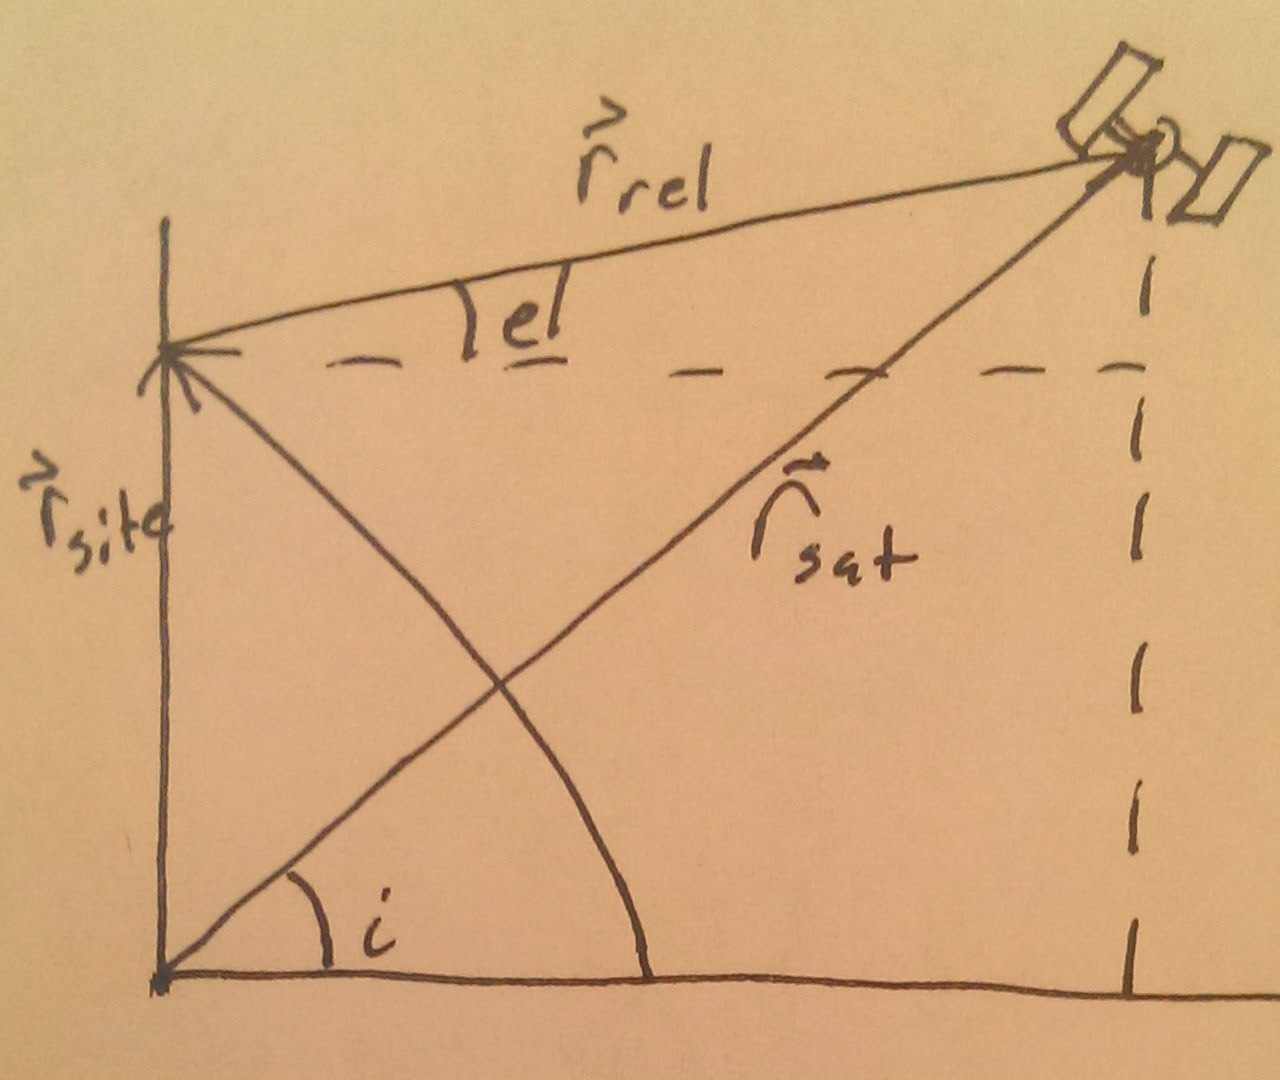 r⃗rel
el
r⃗site
r⃗sat
i